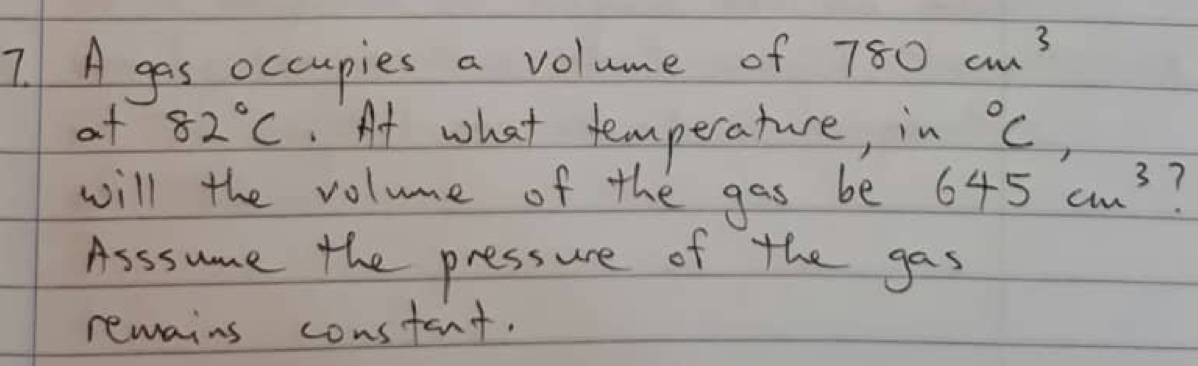 7. A gas occupies a volume of 780 cm³
at 82°C. At what temperature, in °C,
will the volume of the gas be 645 cm³?
Asssume the pressure of the gas
remains constant.